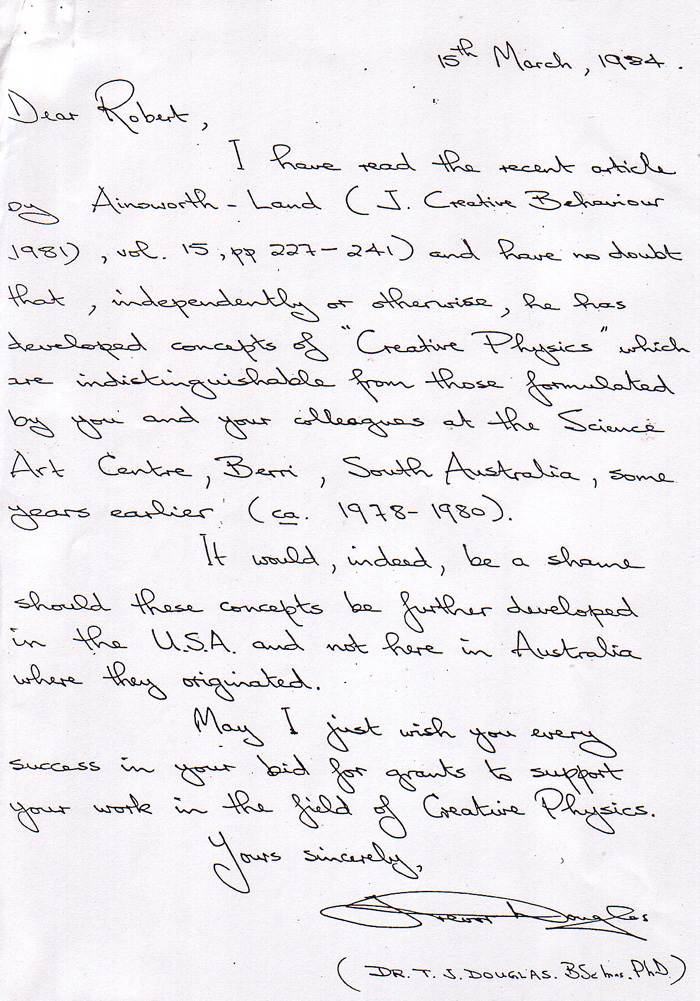 15th March, 1984.
Dear Robert,
I have read the recent article
by Ainsworth-Land (J. Creative Behaviour
1981), vol. 15, pp 227-241) and have no doubt
that, independently or otherwise, he has
developed concepts of "Creative Physics" which
are indistinguishable from those formulated
by you and your colleagues at the Science
Art Centre, Berri, South Australia, some
years earlier (ca. 1978-1980).
It would, indeed, be a shame
should these concepts be further developed
in the U.S.A. and not here in Australia
where they originated.
May I just wish you every
success in your bid for grants to support
your work in the field of Creative Physics.
Yours sincerely,
Trevor Douglas
(DR. T. J. DOUGLAS. BSc hns. PhD.)